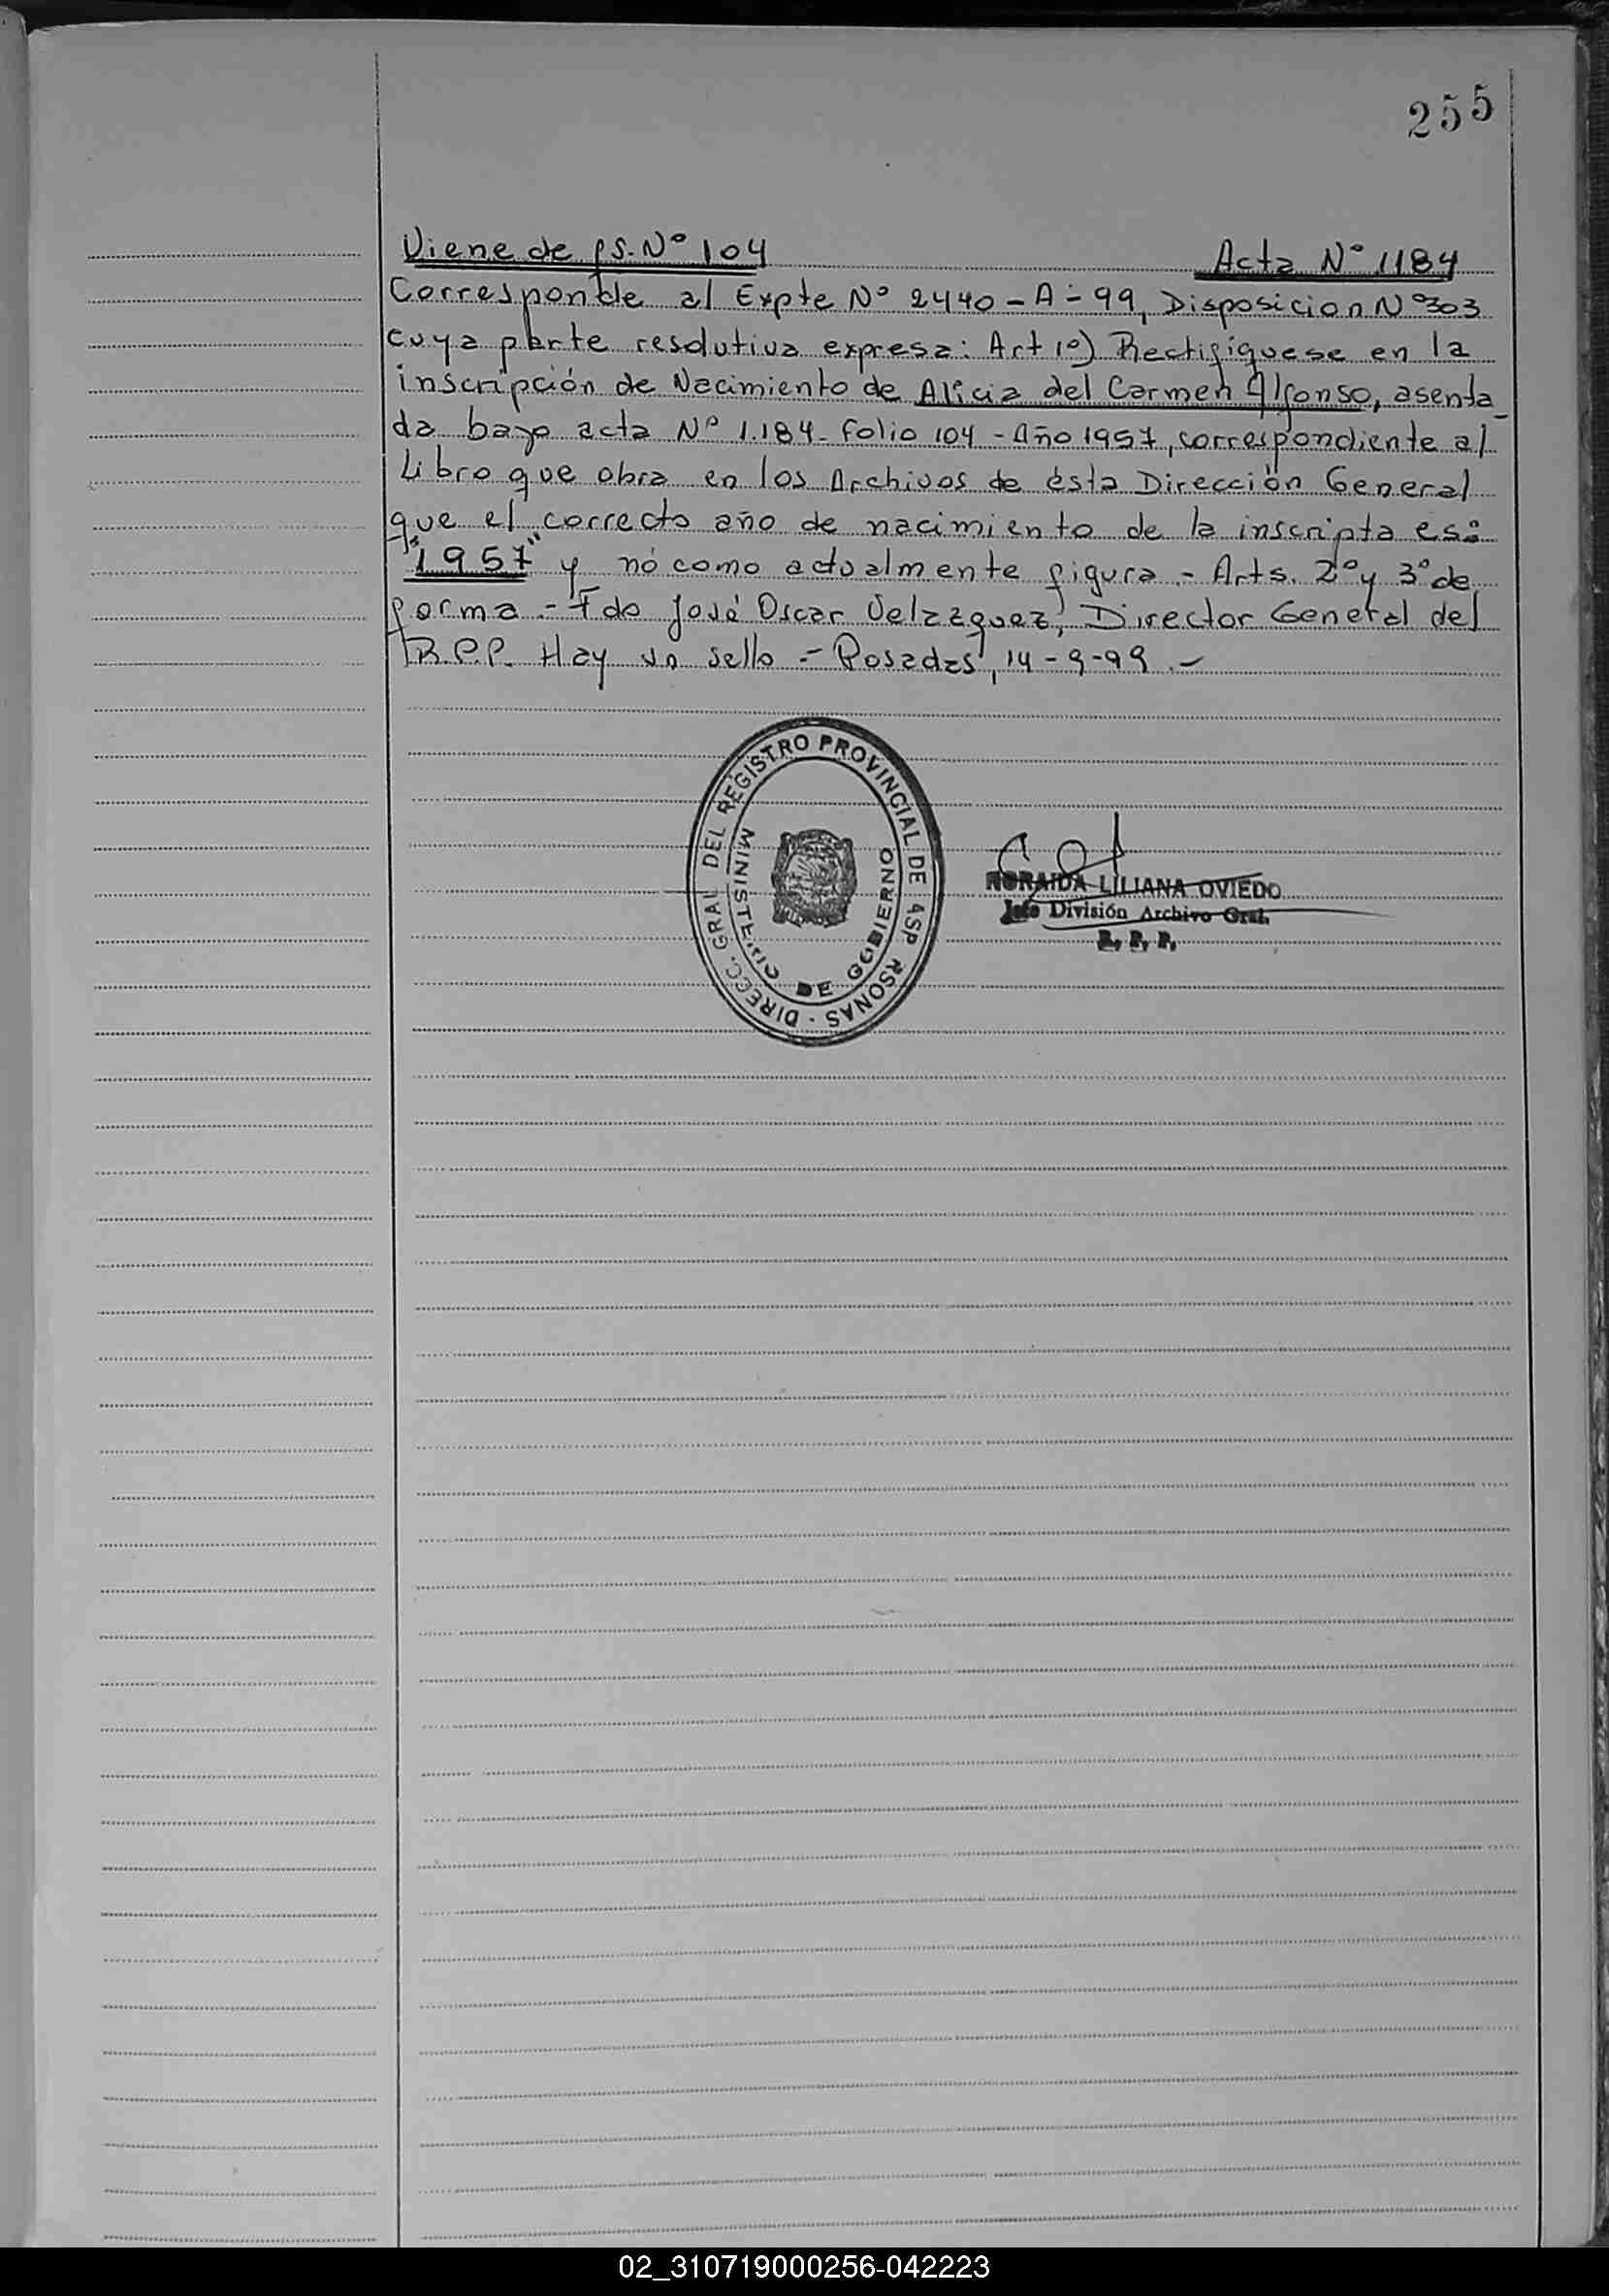 255
Viene de fs. Nº 104 Acta Nº 1184
Corresponde al Expte Nº 2440 - A - 99, Disposicion Nº 303
cuya parte resolutiva expresa: Art 1º) Rectifíquese en la
inscripción de Nacimiento de Alicia del Carmen Alfonso, asenta_
da bajo acta Nº 1.184 - folio 104 - Año 1957, correspondiente al
Libro que obra en los Archivos de ésta Dirección General
que el correcto año de nacimiento de la inscripta es:
"1957" y nó como actualmente figura - Arts. 2º y 3º de
forma - Fdo José Oscar Velazquez, Director General del
R.P.P. Hay un sello - Posadas, 14-9-99.-
DIRECC. GRAL DEL REGISTRO PROVINCIAL DE PERSONAS
MINISTERIO DE GOBIERNO
NORAIDA LILIANA OVIEDO
Jefe División Archivo Gral.
R. P. P.
02_310719000256-042223